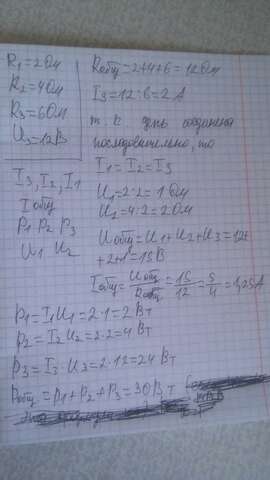 R₁=2Ом
R₂=4Ом
R₃=6Ом
U₃=12В
I₃, I₂, I₁
Iобщ
P₁ P₂ P₃
U₁ U₂
Rобщ=2+4+6=12Ом
I₃=12:6=2А
т.к цепь соединена
последовательно, то
I₁=I₂=I₃
U₁=2:2=1Ом
U₂=4:2=2Ом
Uобщ=U₁+U₂+U₃=12+
+2+1=15В
Iобщ=Uобщ/Rобщ=15/12=5/4=1,25А
P₁=I₁U₁=2·1=2Вт
P₂=I₂U₂=2·2=4Вт
P₃=I₃·U₃=2·12=24Вт
Pобщ=P₁+P₂+P₃=30Вт